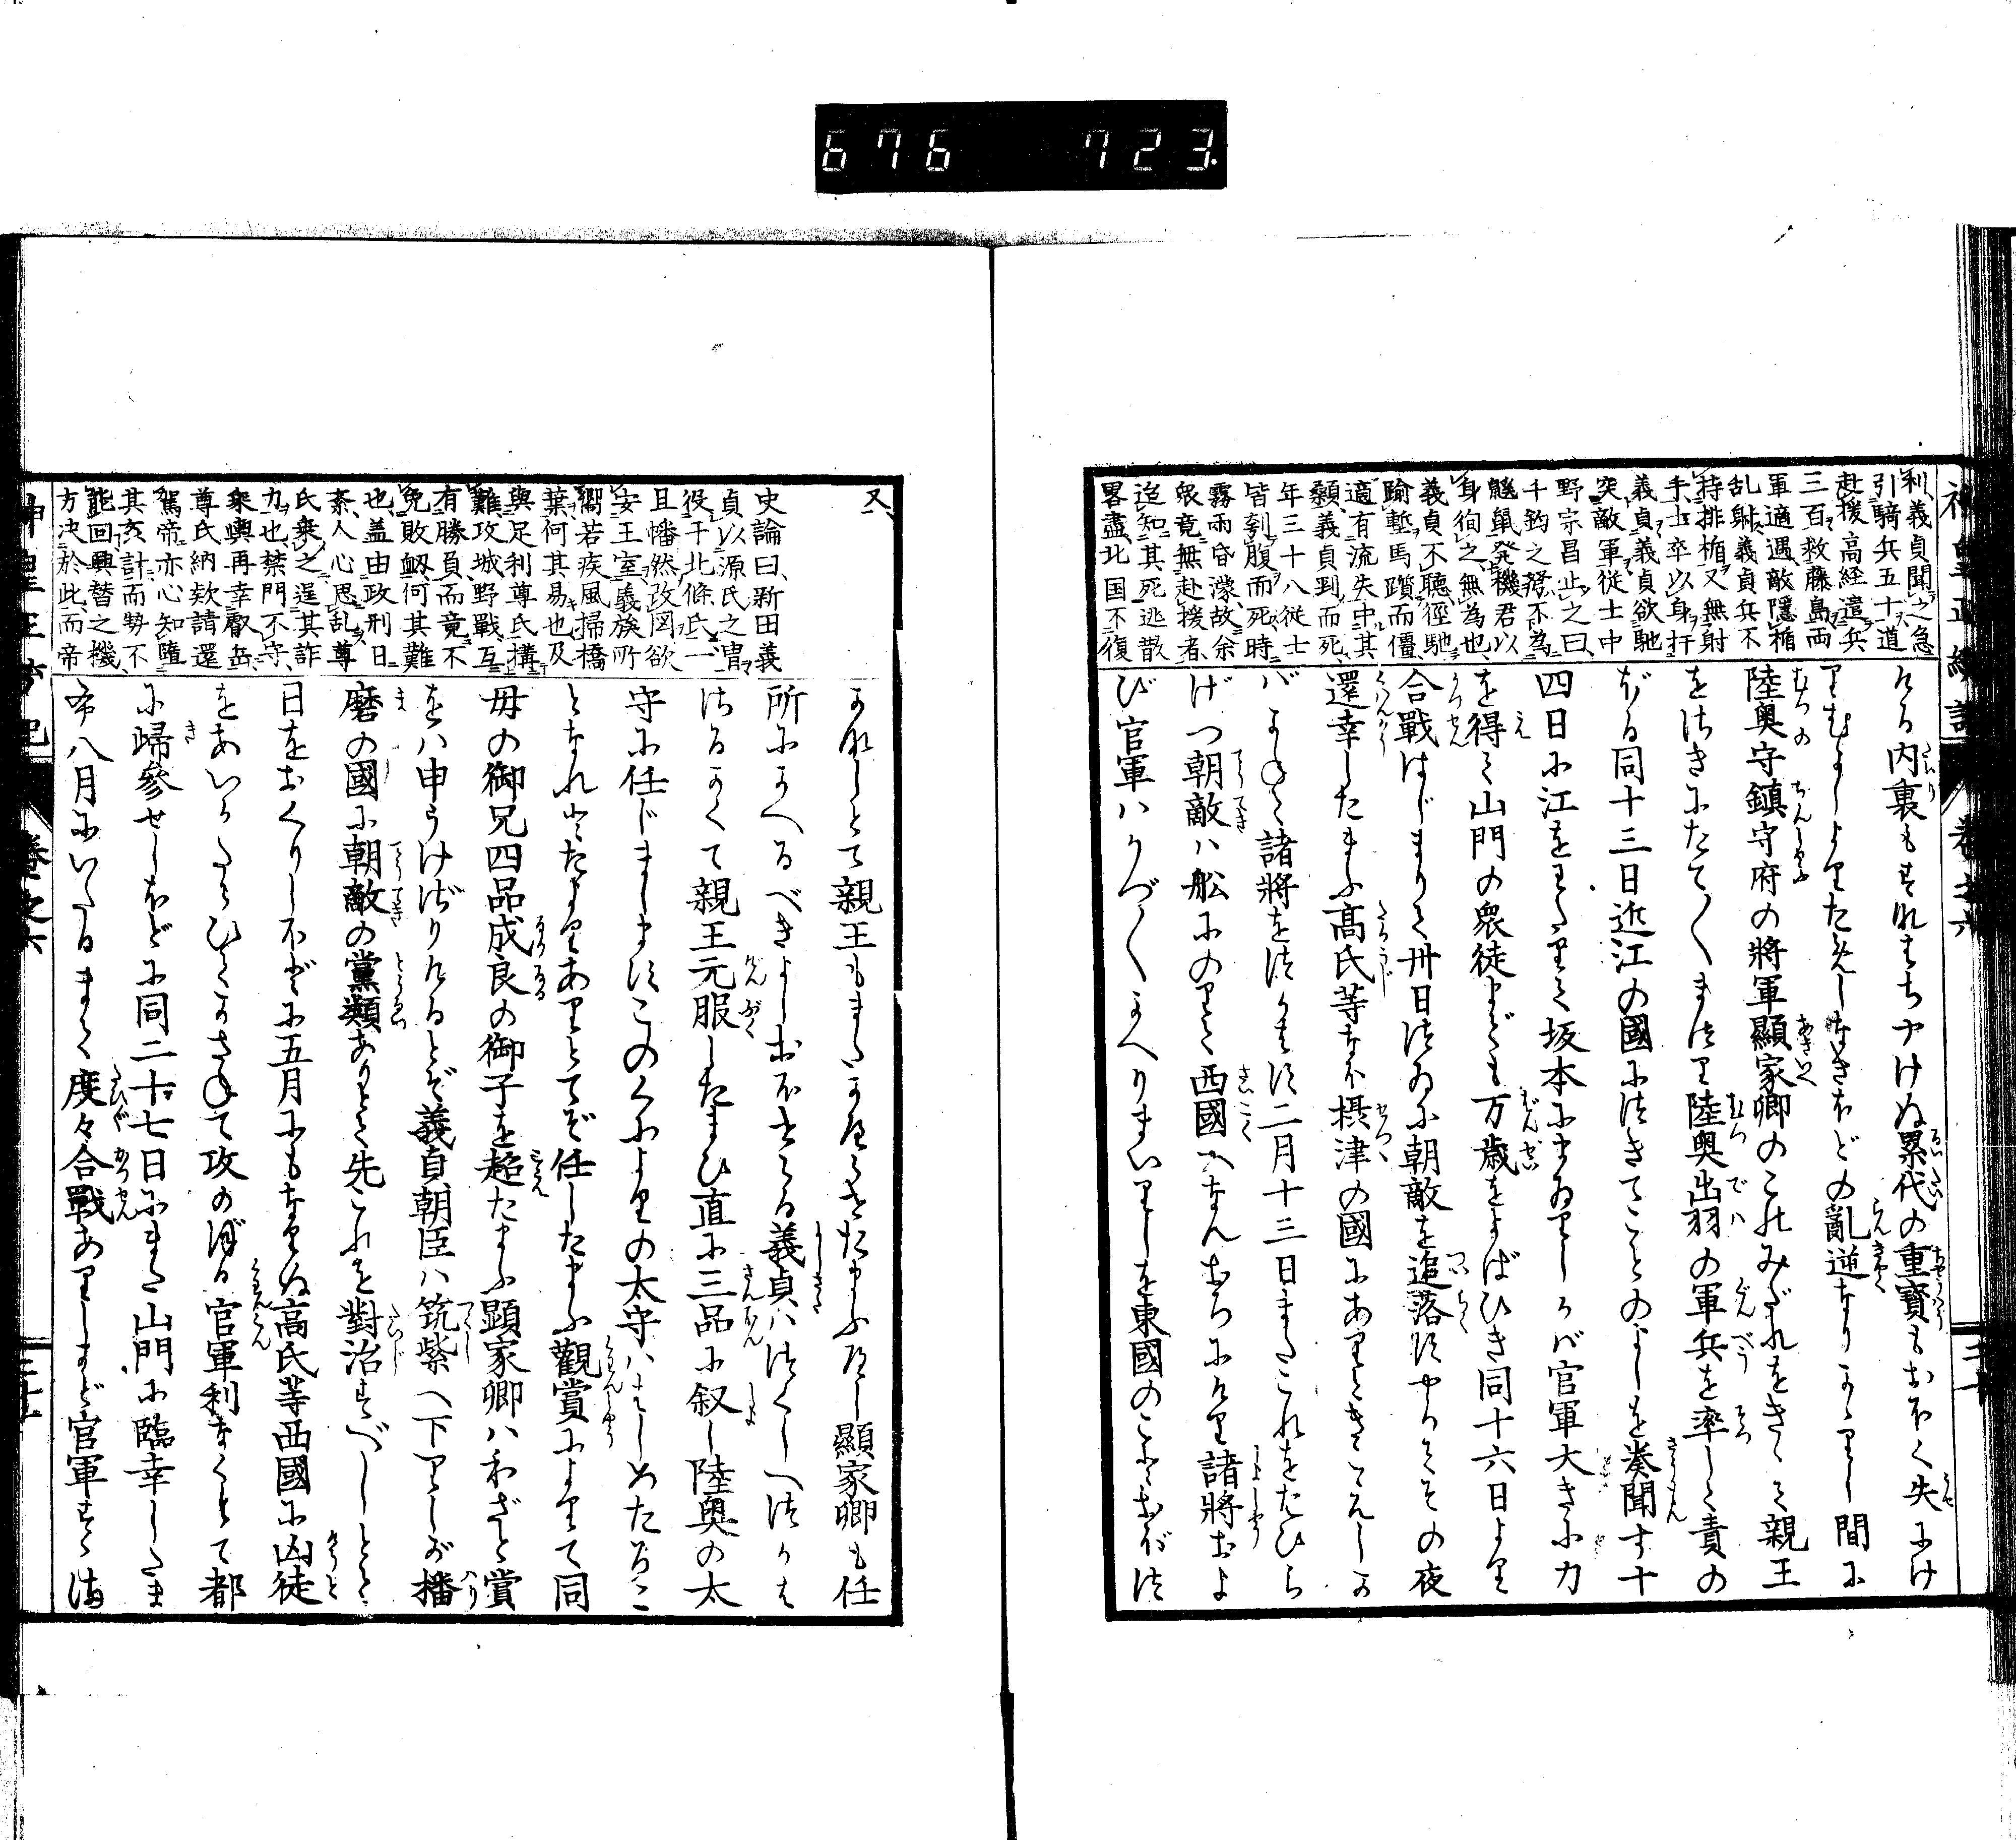 676 723
利、義貞聞之急
引騎兵五十、道
赴援、高経遣兵
三百救藤島、両
軍適遇、敵隠楯
乱射、義貞兵不
持排楯、又無射
手、士卒以身扞
義貞、義貞欲馳
突敵軍、従士中
野宗昌止之曰、
千鈞之弩不為
鼷鼠発機、君以
身徇之、無為也
義貞不聴、径馳
踰塹、馬躓而僵、
適有流矢中其
顙、義貞刎而死、
年三十八、従士
皆刳腹而死、時
霧雨昏濛、故余
衆竟無赴援者、
迨知其死、逃散
畧盡、北国不復
ける内裏もすなはちやけぬ累代の重寳もおほく失にけ
りむかしよりためしなきほどの亂逆なりかゝりし間に
陸奥守鎮守府の將軍顯家卿のこのみだれをきゝて親王
をさきにたてゝまつり陸奥出羽の軍兵を率して責の
ぼる同十三日近江の國につきてことのよしを奏聞す十
四日に江をわたりて坂本にまゐりしかバ官軍大きに力
を得て山門の衆徒までも万歳をよばひき同十六日より
合戰はじまりて丗日つゐに朝敵を追落すやかてその夜
還幸したまふ髙氏等なほ摂津の國にありときこえしか
バかさねて諸將をつかはす二月十三日またこれをたひら
げつ朝敵ハ舩にのりて西國へなんおちにける諸將およ
び官軍ハかつ〴〵かへりまいりしを東國のことおぼつ
又、
史論曰、新田義
貞以源氏之冑
役于北條氏、一
且幡然改図、欲
安王室、義旗所
嚮、若疾風掃橋
葉、何其易也、及
與足利尊氏搆
難、攻城野戰、互
有勝負、而竟不
免敗衂、何其難
也、盖由政刑日
紊、人心思乱、尊
氏乗之、逞其詐
力也、禁門不守、
乗輿再幸叡岳、
尊氏納欵請還
駕、帝亦心知墮
其奸計、而勢不
能回、興替之機、
方決於此、而帝
かなしとて親王もまたかへらせたまふべし顯家卿も任
所にかへるべきよしおほせらる義貞ハつくしへつかは
さるかくて親王元服したまひ直に三品に叙し陸奥の太
守に任じましますこのくによりの太守ハはじめたること
となれどたよりありとてぞ任したまふ觀賞によりて同
母の御兄四品成良の御子を超たまふ顯家卿ハわざと賞
をハ申うけざりけるとぞ義貞朝臣ハ筑紫へ下りしが播
磨の國に朝敵の黨類ありとて先これを對治すべしとて
日をおくりしほどに五月にもなりぬ高氏等西國に凶徒
をあいかたらひてかさねて攻のぼる官軍利なくして都
に歸參せしほどに同二十七日にまた山門に臨幸したま
ふ八月にいたるまて度々合戰ありしかど官軍すゝま